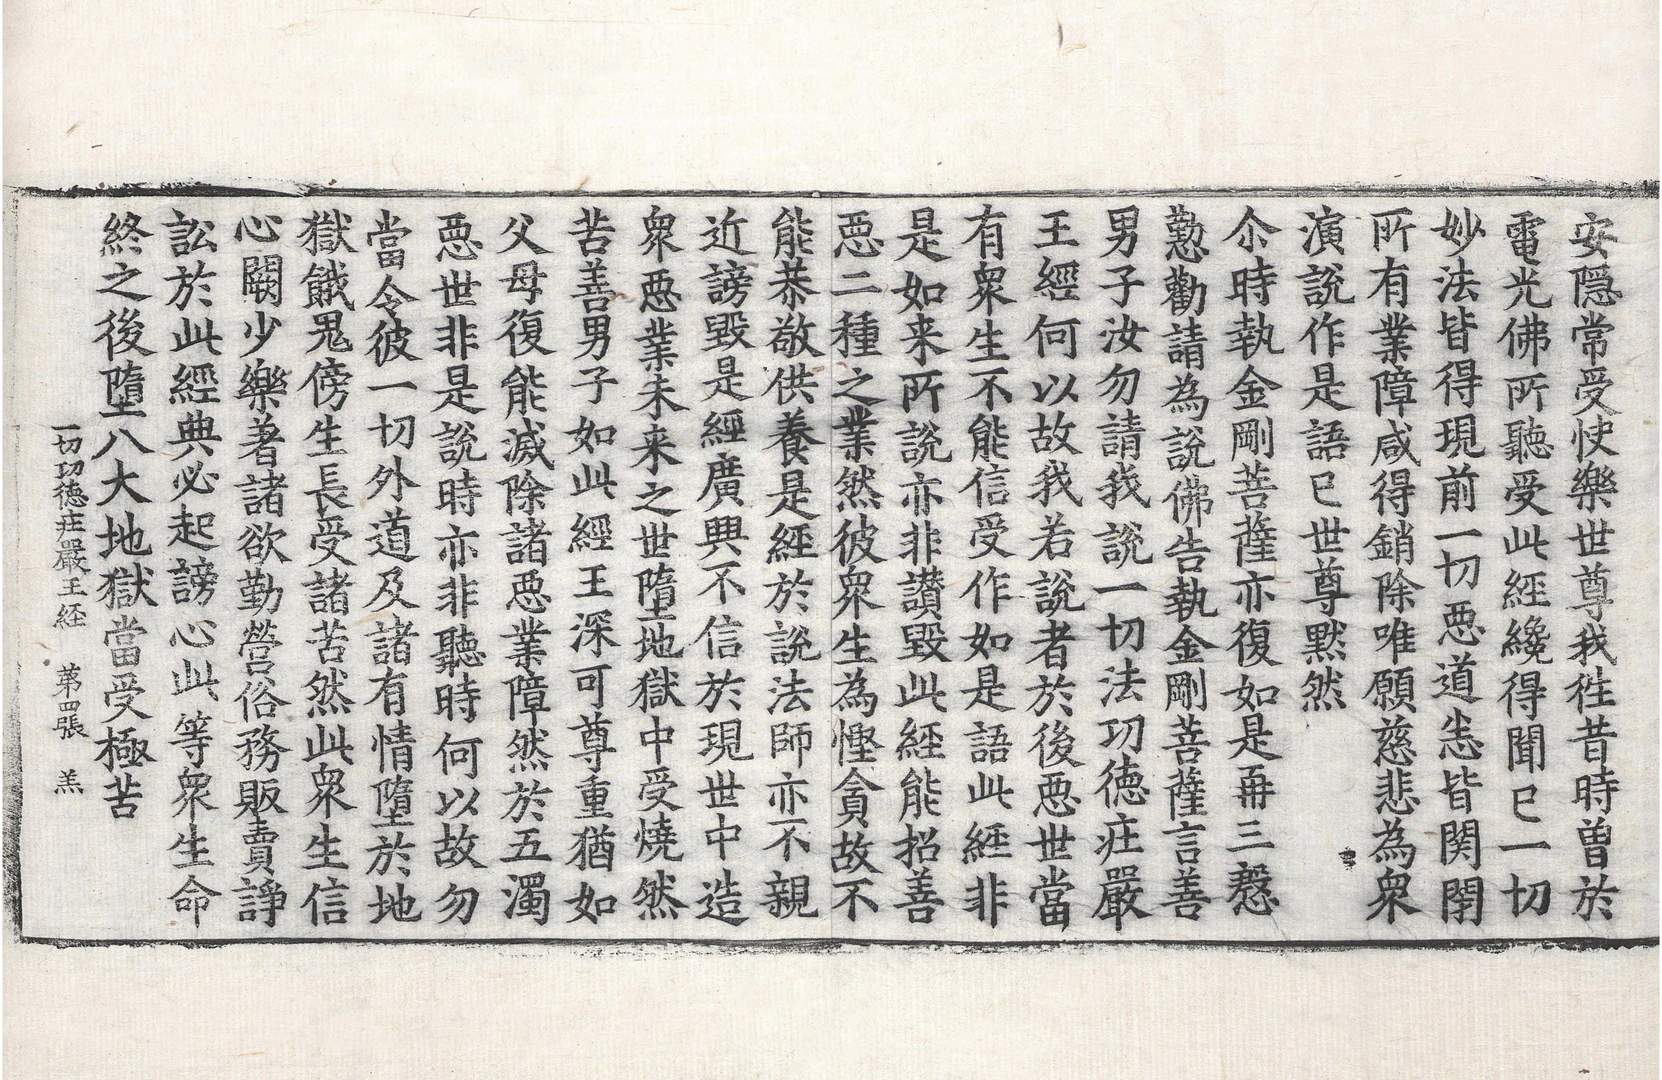 安隠常受快樂世尊我徃昔時曽於
電光佛所聽受此經纔得聞已一切
妙法皆得現前一切惡道悉皆関閇
所有業障咸得銷除唯願慈悲為衆
演說作是語已世尊默然
尒時執金剛菩薩亦復如是再三慇
懃勸請為說佛告執金剛菩薩言善
男子汝勿請我說一切法功德庄嚴
王經何以故我若說者於後惡世當
有衆生不能信受作如是語此經非
是如来所說亦非讃毀此經能招善
惡二種之業然彼衆生為慳貪故不
能恭敬供養是經於說法師亦不親
近謗毀是經廣興不信於現世中造
衆惡業未来之世墮地獄中受燒然
苦善男子如此經王深可尊重猶如
父母復能滅除諸惡業障然於五濁
惡世非是說時亦非聽時何以故勿
當令彼一切外道及諸有情墮於地
獄餓鬼傍生長受諸苦然此衆生信
心闕少樂著諸欲勤營俗務販賣諍
訟於此經典必起謗心此等衆生命
終之後墮八大地獄當受極苦
一切功德庄嚴王経　苐四張　羔